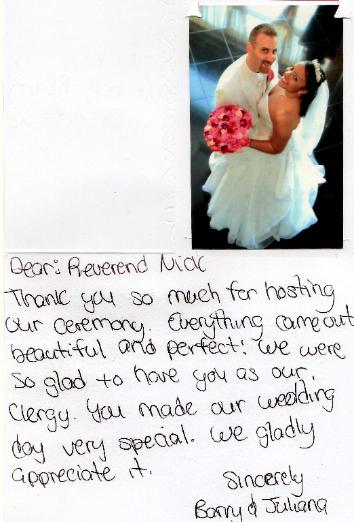 Dear: Reverend Nick
Thank you so much for hosting
our ceremony. Everything came out
beautiful and perfect! We were
so glad to have you as our
Clergy. You made our wedding
day very special. We gladly
appreciate it.
Sincerely
Barry & Juliana